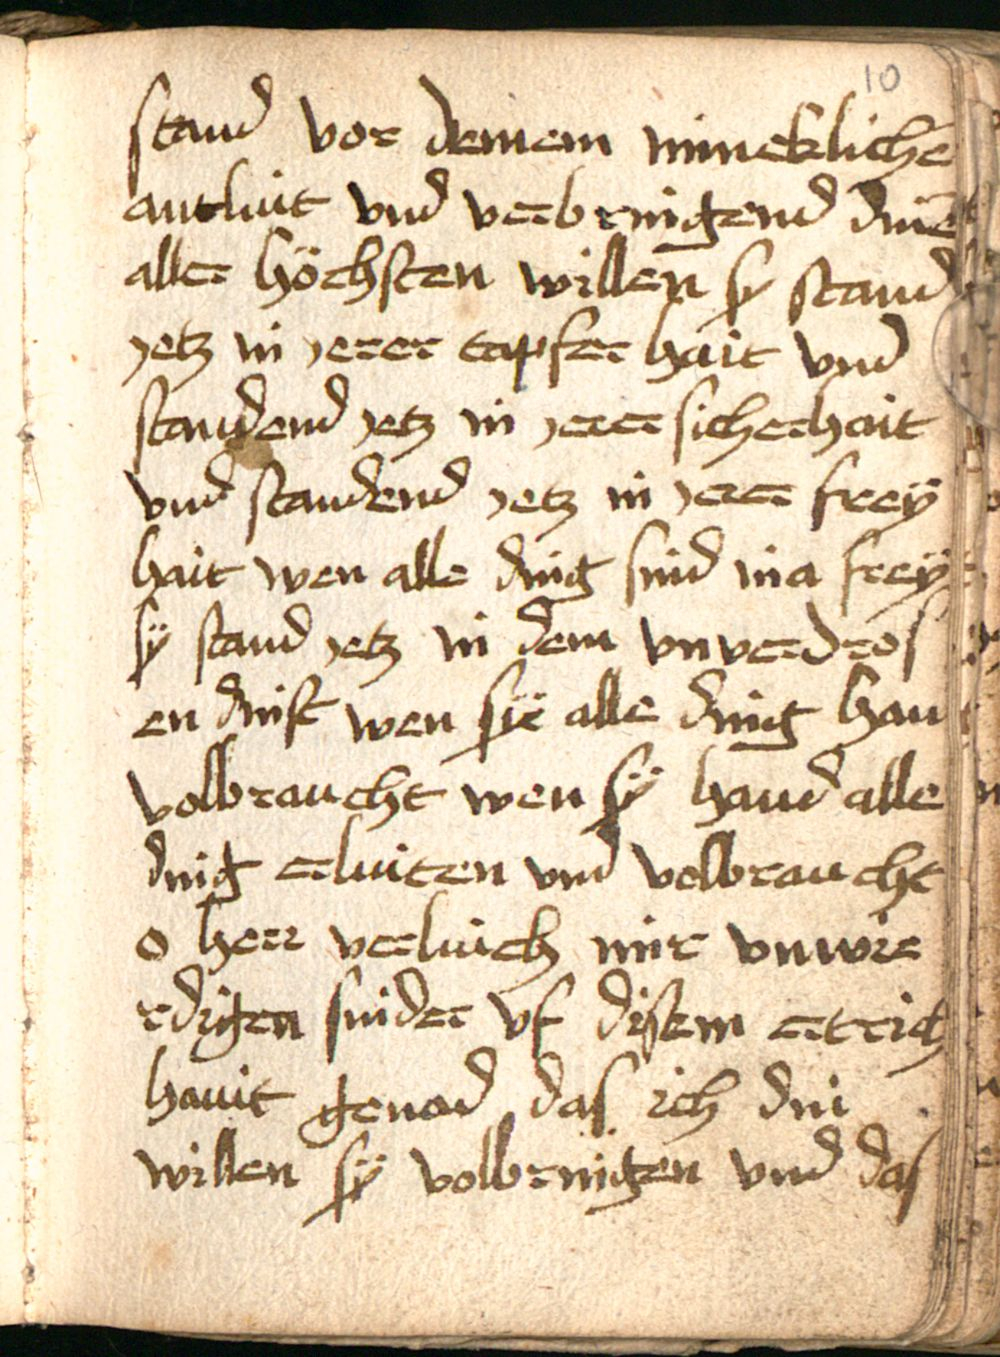 10
stand vor deinem minneklichē
antluit vnd verbringend dinē
aller höchsten willen sy stand
jetz in jerer tapfer hait vnd
standend jetz in jerer sicherhait
vnd standend jetz in jerer freÿ
hait wen alle ding sind ina freÿ
sÿ stand jetz in dem unverdros
en dinst wen sÿe alle ding han
volbraucht wen sÿ hand alle
ding erluiten vnd volbraucht
o herr verluich mir vnwir
rdigen sinder vf disem ertrich
hauit genad das ich din
willen sÿ volbringen vnd das